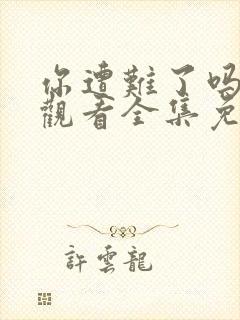 你遭難了吗
觀看全集免
許雲龍